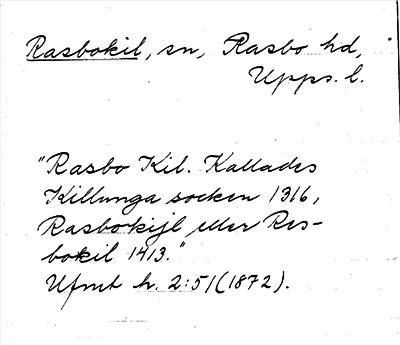 Rasbokil, sn, Rasbo hd,
Upps. l.
"Rasbo Kil. Kallades
Killunga socken 1316,
Rasbokijl eller Ras-
bokil 1413."
Ufmt h. 2:51 (1872).